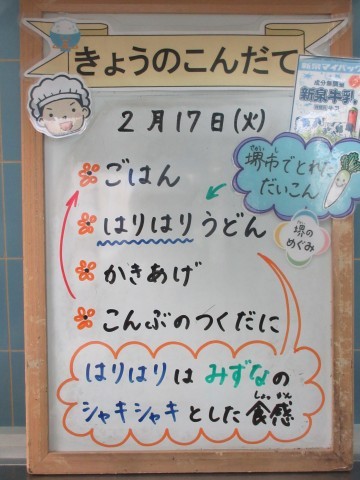 きょうのこんだて
2月17日(火)
新泉マイパック
成分無調整
新泉牛乳
堺市でとれた
だいこん
堺の
めぐみ
ごはん
はりはりうどん
かきあげ
こんぶのつくだに
はりはりは みずなの
シャキシャキとした食感
しょっかん